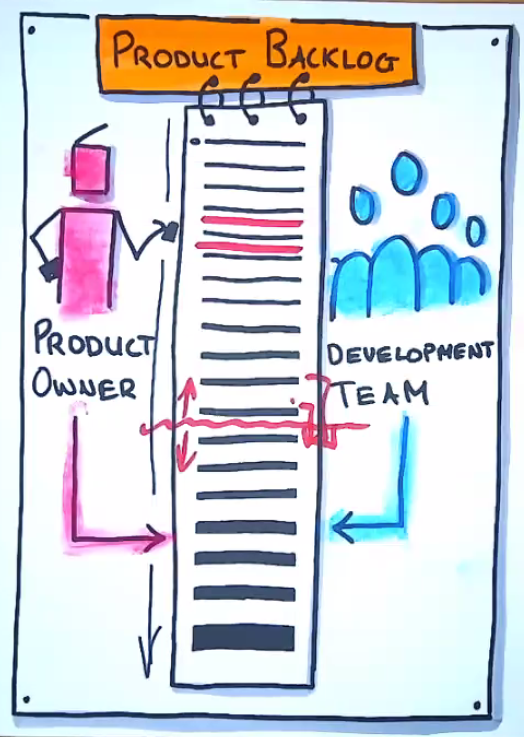 PRODUCT BACKLOG
PRODUCT
OWNER
DEVELOPMENT
TEAM